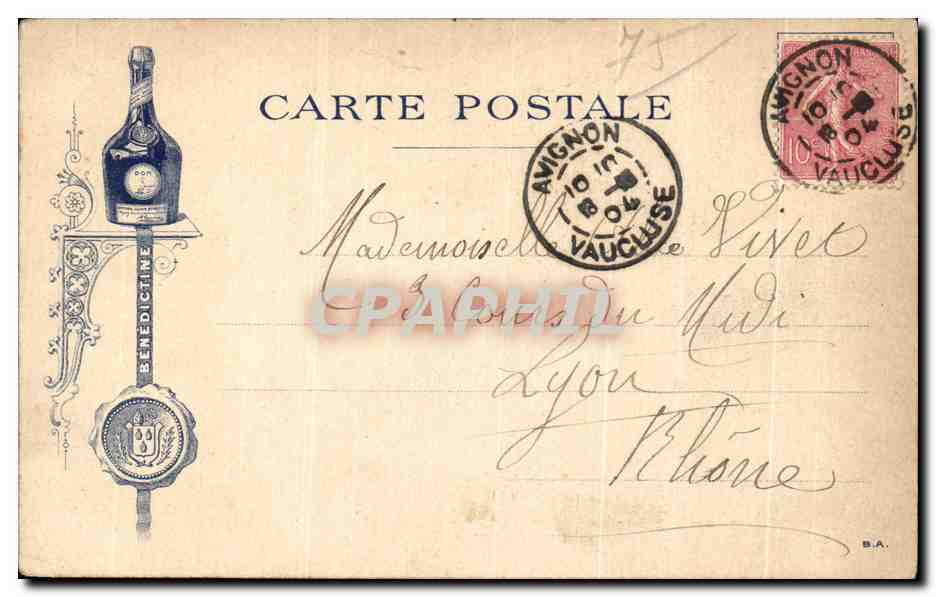 75
CARTE POSTALE
AVIGNON
VAUCLUSE
AVIGNON
VAUCLUSE
10
DOM
BÉNÉDICTINE
Mademoiselle Vivet
3 Cours du Midi
Lyon
Rhône
CPAPHIL
B.A.